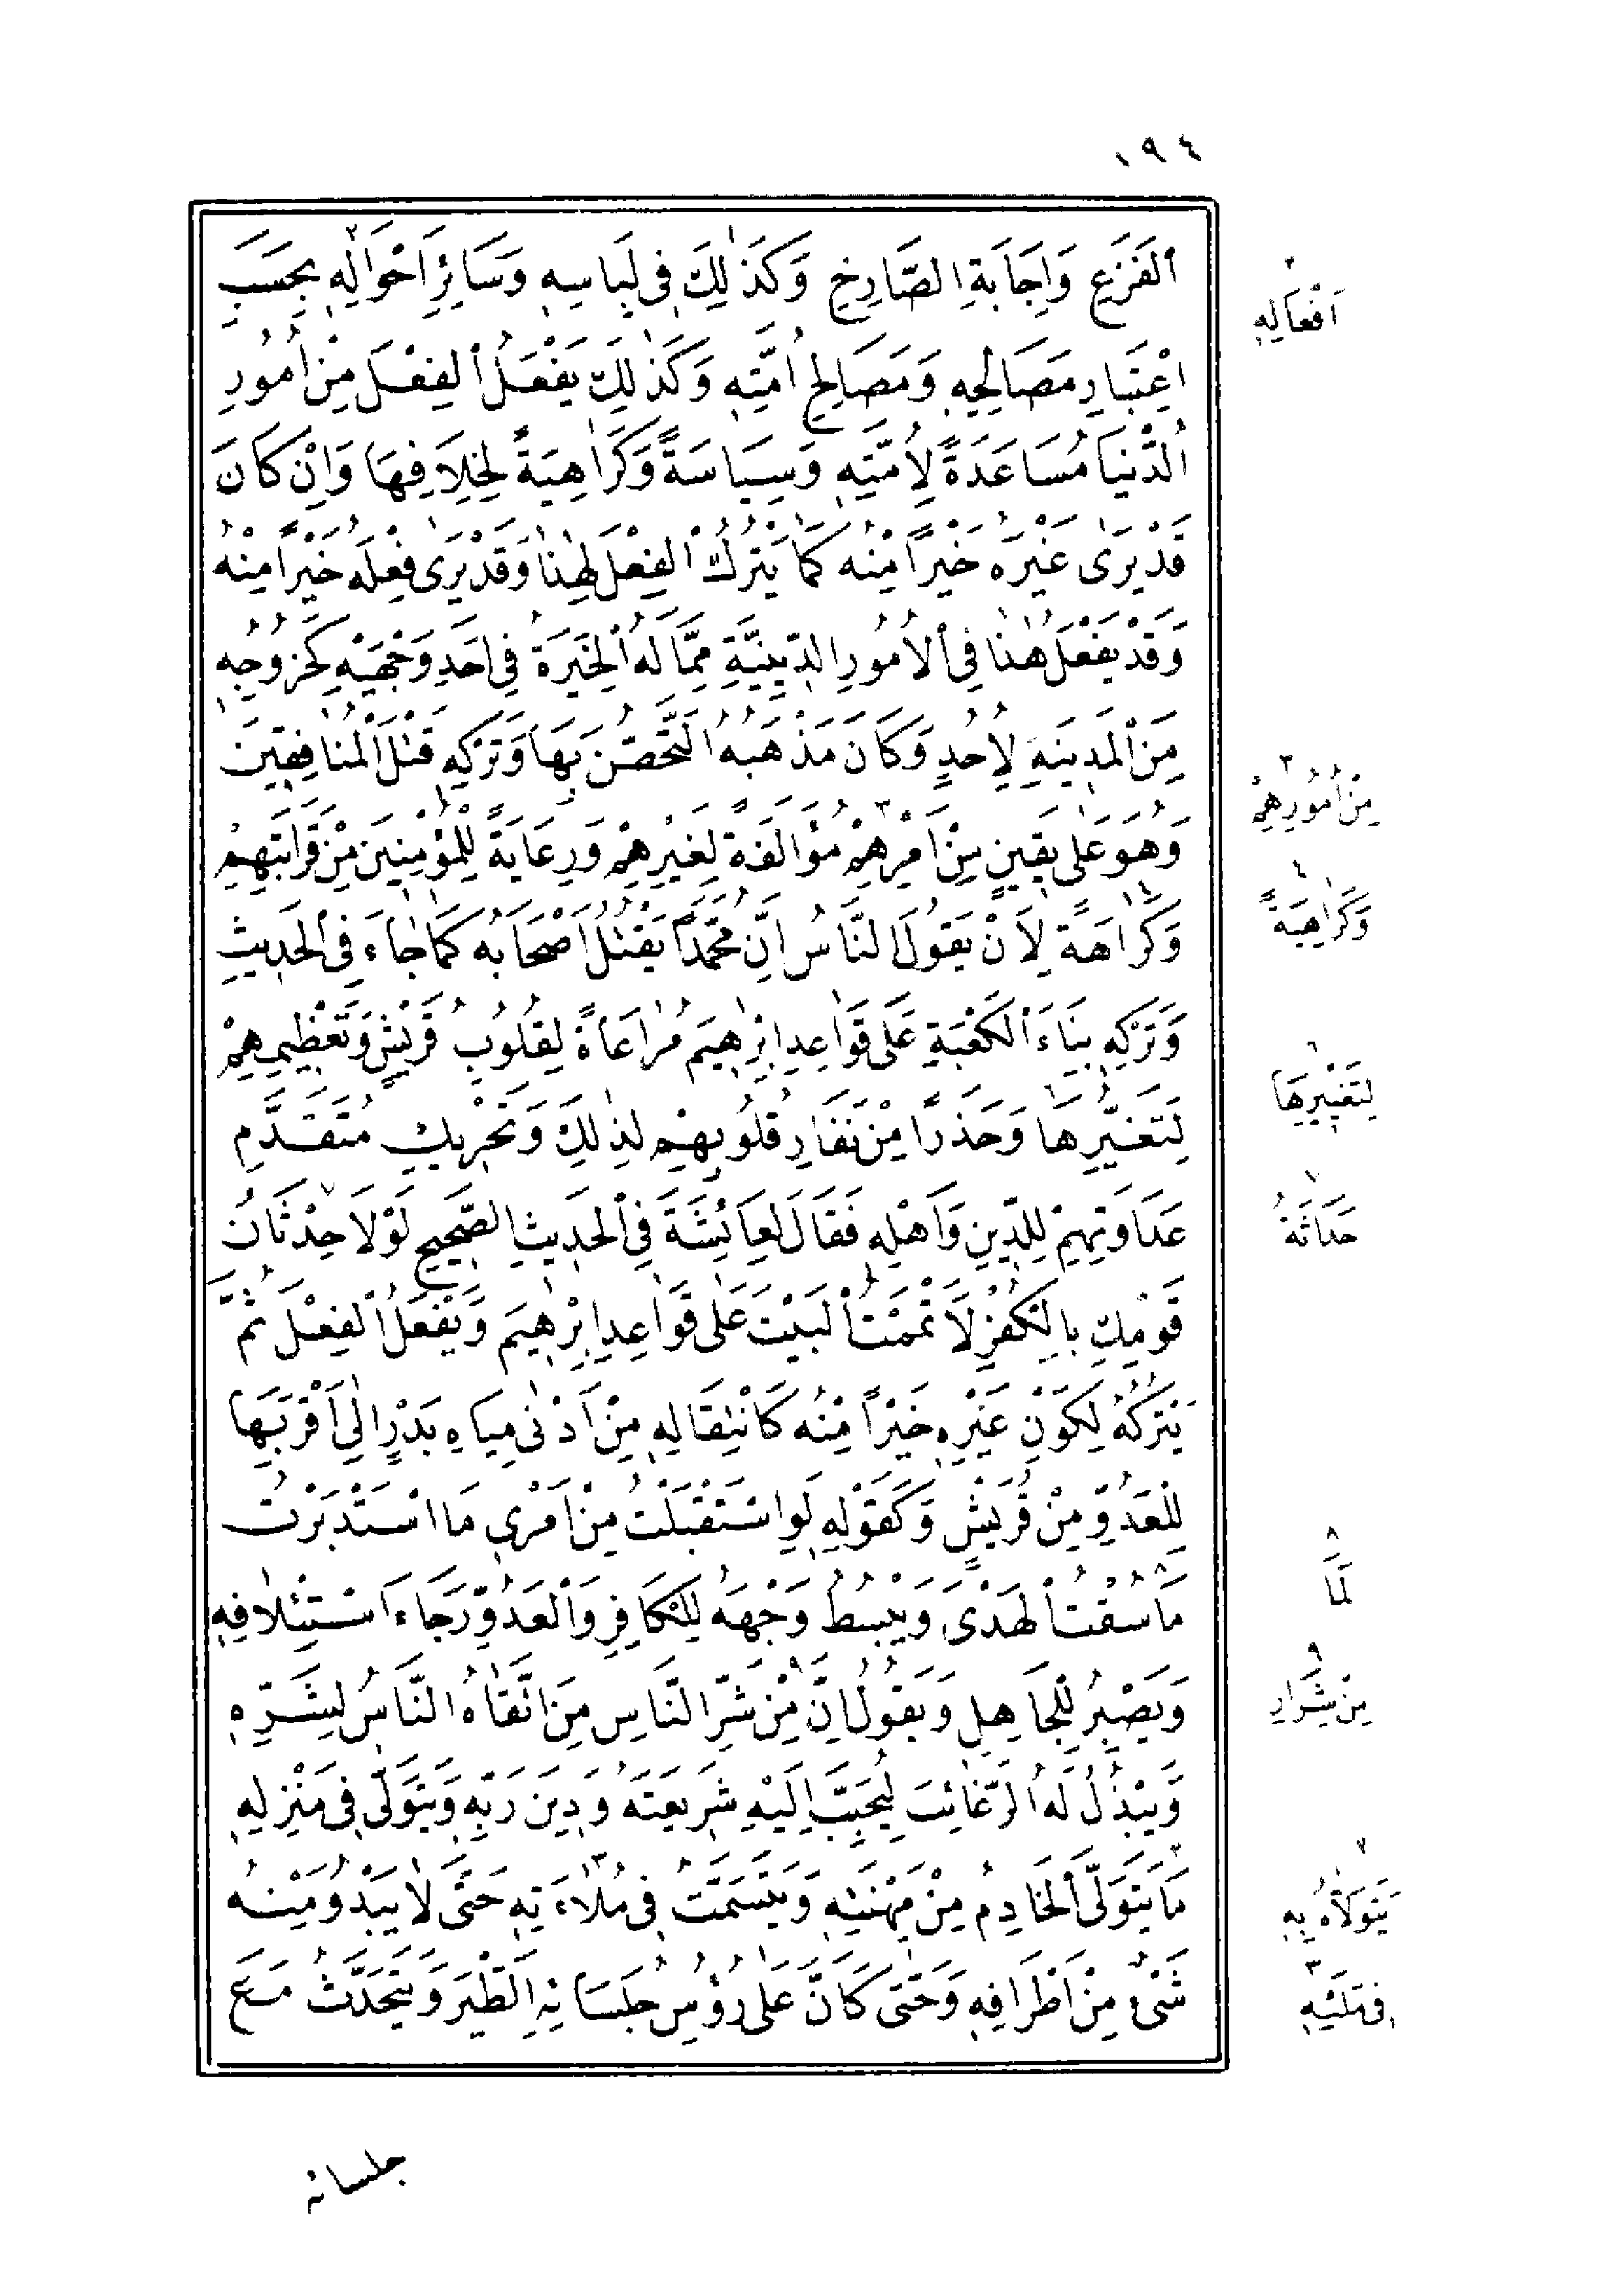 ١٩٤
اَلْفَزَعِ وَاِجَابَةِ الصَّارِخِ وَكَذٰلِكَ فِى لِبَاسِهِ وَسَائِرِ اَحْوَالِهِ بِحَسَبِ
اِعْتِبَارِ مَصَالِحِهِ وَمَصَالِحِ اُمَّتِهِ وَكَذٰلِكَ يَفْعَلُ الْفِعْلَ مِنْ اُمُورِ
الدُّنْيَا مُسَاعَدَةً لِاُمَّتِهِ وَسِيَاسَةً وَكَرَاهِيَةً لِخِلَافِهَا وَاِنْ كَانَ
قَدْ يَرٰى غَيْرَهُ خَيْرًا مِنْهُ كَمَا يَتْرُكُ الْفِعْلَ لِهٰذَا وَقَدْ يَرٰى فِعْلَهُ خَيْرًا مِنْهُ
وَقَدْ يَفْعَلُ هٰذَا فِى الْاُمُورِ الدِّينِيَّةِ مِمَّا لَهُ الْخِيَرَةُ فِى اَحَدِ وَجْهَيْهِ كَخُرُوجِهِ
مِنَ الْمَدِينَةِ لِاُحُدٍ وَكَانَ مَذْهَبُهُ التَّحَصُّنَ بِهَا وَتَرْكِهِ قَتْلَ الْمُنَافِقِينَ
وَهُوَ عَلٰى يَقِينٍ مِنْ اَمْرِهِمْ مُؤَالَفَةً لِغَيْرِهِمْ وَرِعَايَةً لِلْمُؤْمِنِينَ مِنْ قَرَابَتِهِمْ
وَكَرَاهَةً لِاَنْ يَقُولَ النَّاسُ اِنَّ مُحَمَّدًا يَقْتُلُ اَصْحَابَهُ كَمَا جَاءَ فِى الْحَدِيثِ
وَتَرْكِهِ بِنَاءَ الْكَعْبَةِ عَلٰى قَوَاعِدِ اِبْرٰهِيمَ مُرَاعَاةً لِقُلُوبِ قُرَيْشٍ وَتَعْظِيمِهِمْ
لِتَغَيُّرِهَا وَحَذَرًا مِنْ نَفَارِ قُلُوبِهِمْ لِذٰلِكَ وَتَحْرِيكِ مُتَقَدِّمِ
عَدَاوَتِهِمْ لِلدِّينِ وَاَهْلِهِ فَقَالَ لِعَائِشَةَ فِى الْحَدِيثِ الصَّحِيحِ لَوْلَا حِدْثَانُ
قَوْمِكِ بِالْكُفْرِ لَاَتْمَمْتُ الْبَيْتَ عَلٰى قَوَاعِدِ اِبْرٰهِيمَ وَيَفْعَلُ الْفِعْلَ ثُمَّ
يَتْرُكُهُ لِكَوْنِ غَيْرِهِ خَيْرًا مِنْهُ كَانْتِقَالِهِ مِنْ اَدْنٰى مِيَاهِ بَدْرٍ اِلٰى اَقْرَبِهَا
لِلْعَدُوِّ مِنْ قُرَيْشٍ وَكَقَوْلِهِ لَوِ اسْتَقْبَلْتُ مِنْ اَمْرِى مَا اسْتَدْبَرْتُ
مَا سُقْتُ الْهَدْىَ وَيَبْسُطُ وَجْهَهُ لِلْكَافِرِ وَالْعَدُوِّ رَجَاءَ اسْتِئْلَافِهِ
وَيَصْبِرُ لِلْجَاهِلِ وَيَقُولُ اِنَّ مِنْ شَرِّ النَّاسِ مَنِ اتَّقَاهُ النَّاسُ لِشَرِّهِ
وَيَبْذُلُ لَهُ الرَّغَائِبَ لِيُحَبِّبَ اِلَيْهِ شَرِيعَتَهُ وَدِينَ رَبِّهِ وَيَتَوَلّٰى فِى مَنْزِلِهِ
مَا يَتَوَلَّى الْخَادِمُ مِنْ مِهْنَتِهِ وَيَتَسَمَّتُ فِى مُلَاءَتِهِ حَتّٰى لَا يَبْدُوَ مِنْهُ
شَىْءٌ مِنْ اَطْرَافِهِ وَحَتّٰى كَاَنَّ عَلٰى رُؤُسِ جُلَسَائِهِ الطَّيْرَ وَيَتَحَدَّثُ مَعَ
٢ اَفْعَالِهِ
٣ مِنْ اُمُورِهِمْ
٤ وَكَرَاهِيَةً
٦ لِتَغْيِيرِهَا
٧ حَدَاثَةُ
٨ لَمَا
٩ مِنْ شِرَارِ
٢ يَتَوَلَّاهُ بِهِ
٣ فِى مُلَئِهِ
جلسائه